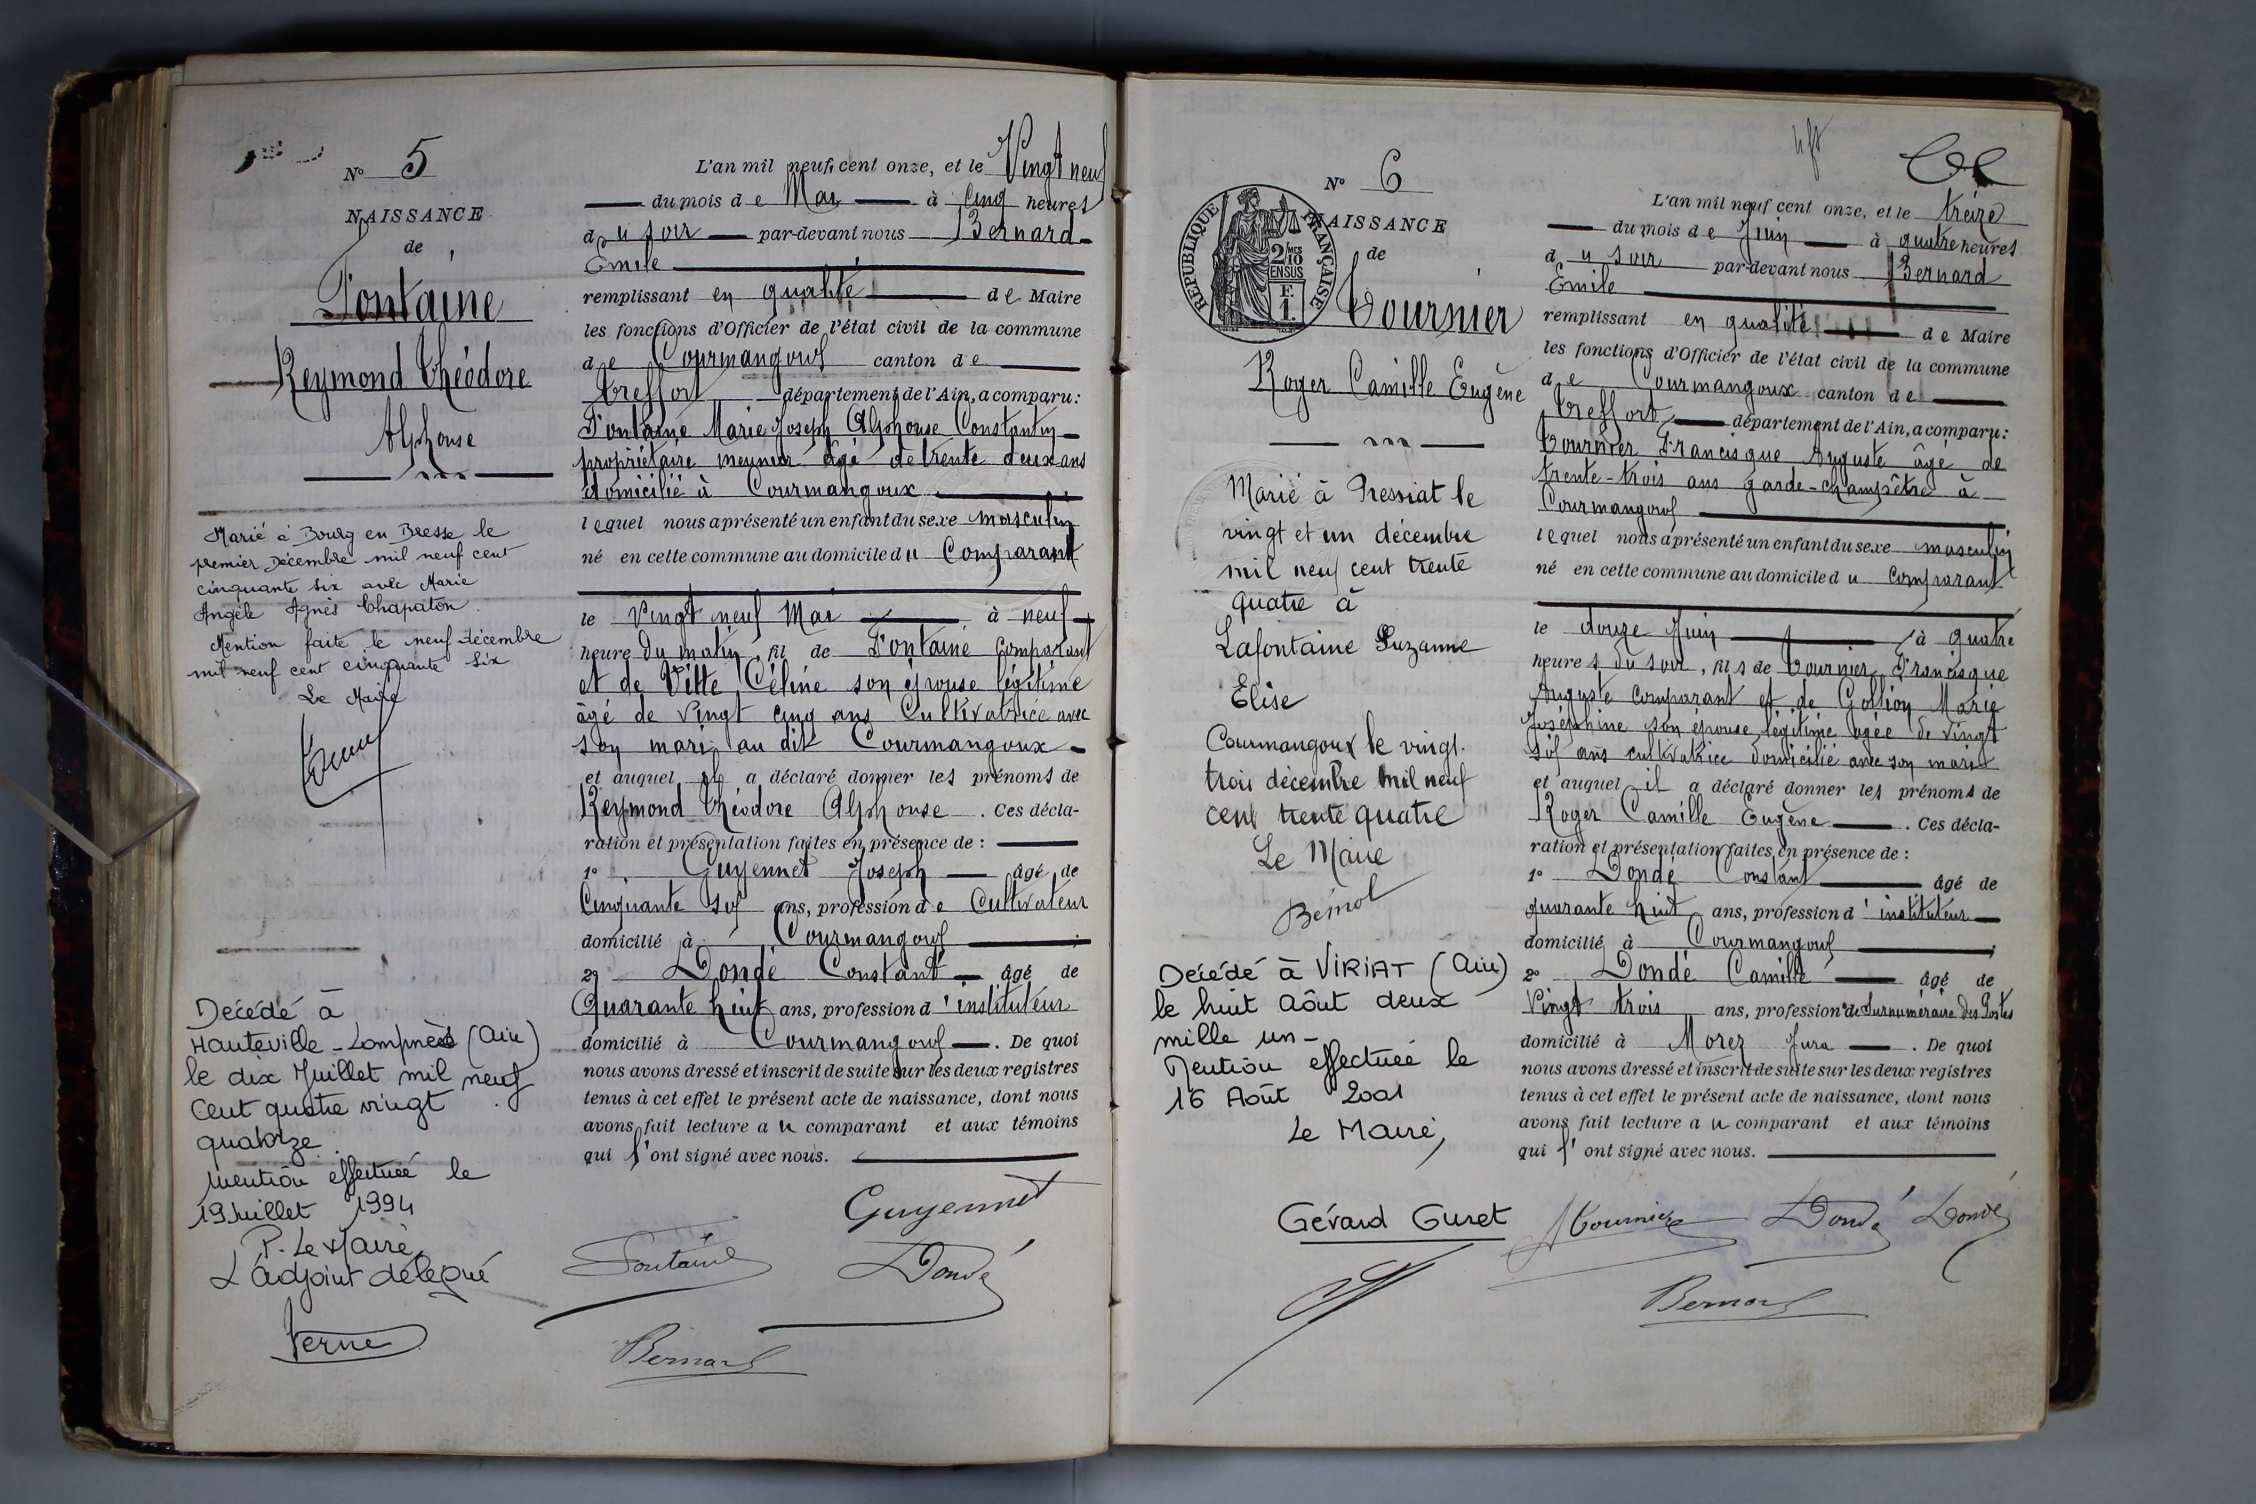 N° 5
NAISSANCE
de
Fontaine
Reymond Théodore
Alphonse
Marié à Bourg en Bresse le
premier Décembre mil neuf cent
cinquante six avec Marie
Angèle Agnès Chapaton.
Mention faite le neuf décembre
mil neuf cent cinquante six
Le Maire
Décédé à
Hauteville-Lompnès (Ain)
le dix Juillet mil neuf
cent quatre vingt
quatorze.
Mention effectuée le
19 Juillet 1994
P. Le Maire,
L'adjoint délégué
Verne
L'an mil neuf cent onze, et le Vingt neuf
du mois de Mai à cinq heures
du soir par-devant nous Bernard
Emile
remplissant en qualité de Maire
les fonctions d'Officier de l'état civil de la commune
de Courmangoux canton de
Treffort département de l'Ain, a comparu:
Fontaine Marie Joseph Alphonse Constantin
propriétaire meunier âgé de trente deux ans
domicilié à Courmangoux
lequel nous a présenté un enfant du sexe masculin
né en cette commune au domicile du Comparant
le Vingt neuf Mai à neuf
heure du matin, fil de Fontaine Comparant
et de Vitte Céline son épouse légitime
âgé de vingt cinq ans Cultivatrice avec
son mari au dit Courmangoux
et auquel il a déclaré donner les prénoms de
Reymond Théodore Alphonse. Ces décla-
ration et présentation faites en présence de :
1° Guyennet Joseph âgé de
Cinquante six ans, profession de Cultivateur
domicilié à Courmangoux ;
2° Dondé Constant âgé de
Quarante huit ans, profession d'instituteur
domicilié à Courmangoux. De quoi
nous avons dressé et inscrit de suite sur les deux registres
tenus à cet effet le présent acte de naissance, dont nous
avons fait lecture au comparant et aux témoins
qui l'ont signé avec nous.
Guyennet
Fontaine Dondé
Bernard
N° 6
NAISSANCE
de
RÉPUBLIQUE FRANÇAISE
2/10 MES
EN SUS
F.
1.
Tournier
Roger Camille Eugène
Marié à Pressiat le
vingt et un décembre
mil neuf cent trente
quatre à
Lafontaine Suzanne
Elise
Courmangoux le vingt-
trois décembre mil neuf
cent trente quatre
Le Maire
Décédé à VIRIAT (Ain)
le huit Août deux
mille un-
Mention effectuée le
16 Août 2001
Le Maire,
Gérard Guret
L'an mil neuf cent onze, et le treize
du mois de Juin à quatre heures
du soir par-devant nous Bernard
Emile
remplissant en qualité de Maire
les fonctions d'Officier de l'état civil de la commune
de Courmangoux canton de
Treffort département de l'Ain, a comparu:
Tournier Francisque Auguste âgé de
trente-trois ans garde-champêtre à
Courmangoux
lequel nous a présenté un enfant du sexe masculin
né en cette commune au domicile du comparant
le douze Juin à quatre
heures du soir, fils de Tournier Francisque
Auguste comparant et de Gollion Marie
Joséphine son épouse légitime agée de vingt
six ans cultivatrice domicilié avec son mari
et auquel il a déclaré donner les prénoms de
Roger Camille Eugène. Ces décla-
ration et présentation faites en présence de :
1° Dondé Constant âgé de
quarante huit ans, profession d'instituteur
domicilié à Courmangoux ;
2° Dondé Camille âgé de
Vingt trois ans, profession de Surnuméraire des Postes
domicilié à Morez Jura. De quoi
nous avons dressé et inscrit de suite sur les deux registres
tenus à cet effet le présent acte de naissance, dont nous
avons fait lecture au comparant et aux témoins
qui l'ont signé avec nous.
Tournier Dondé Dondé
Bernard